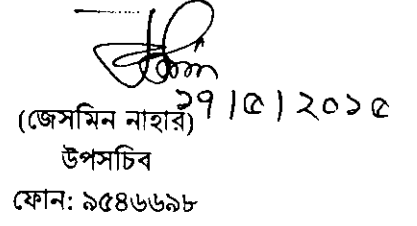 ১৭।৫।২০১৫
(জেসমিন নাহার)
উপসচিব
ফোন: ৯৫৪৬৬৯৮